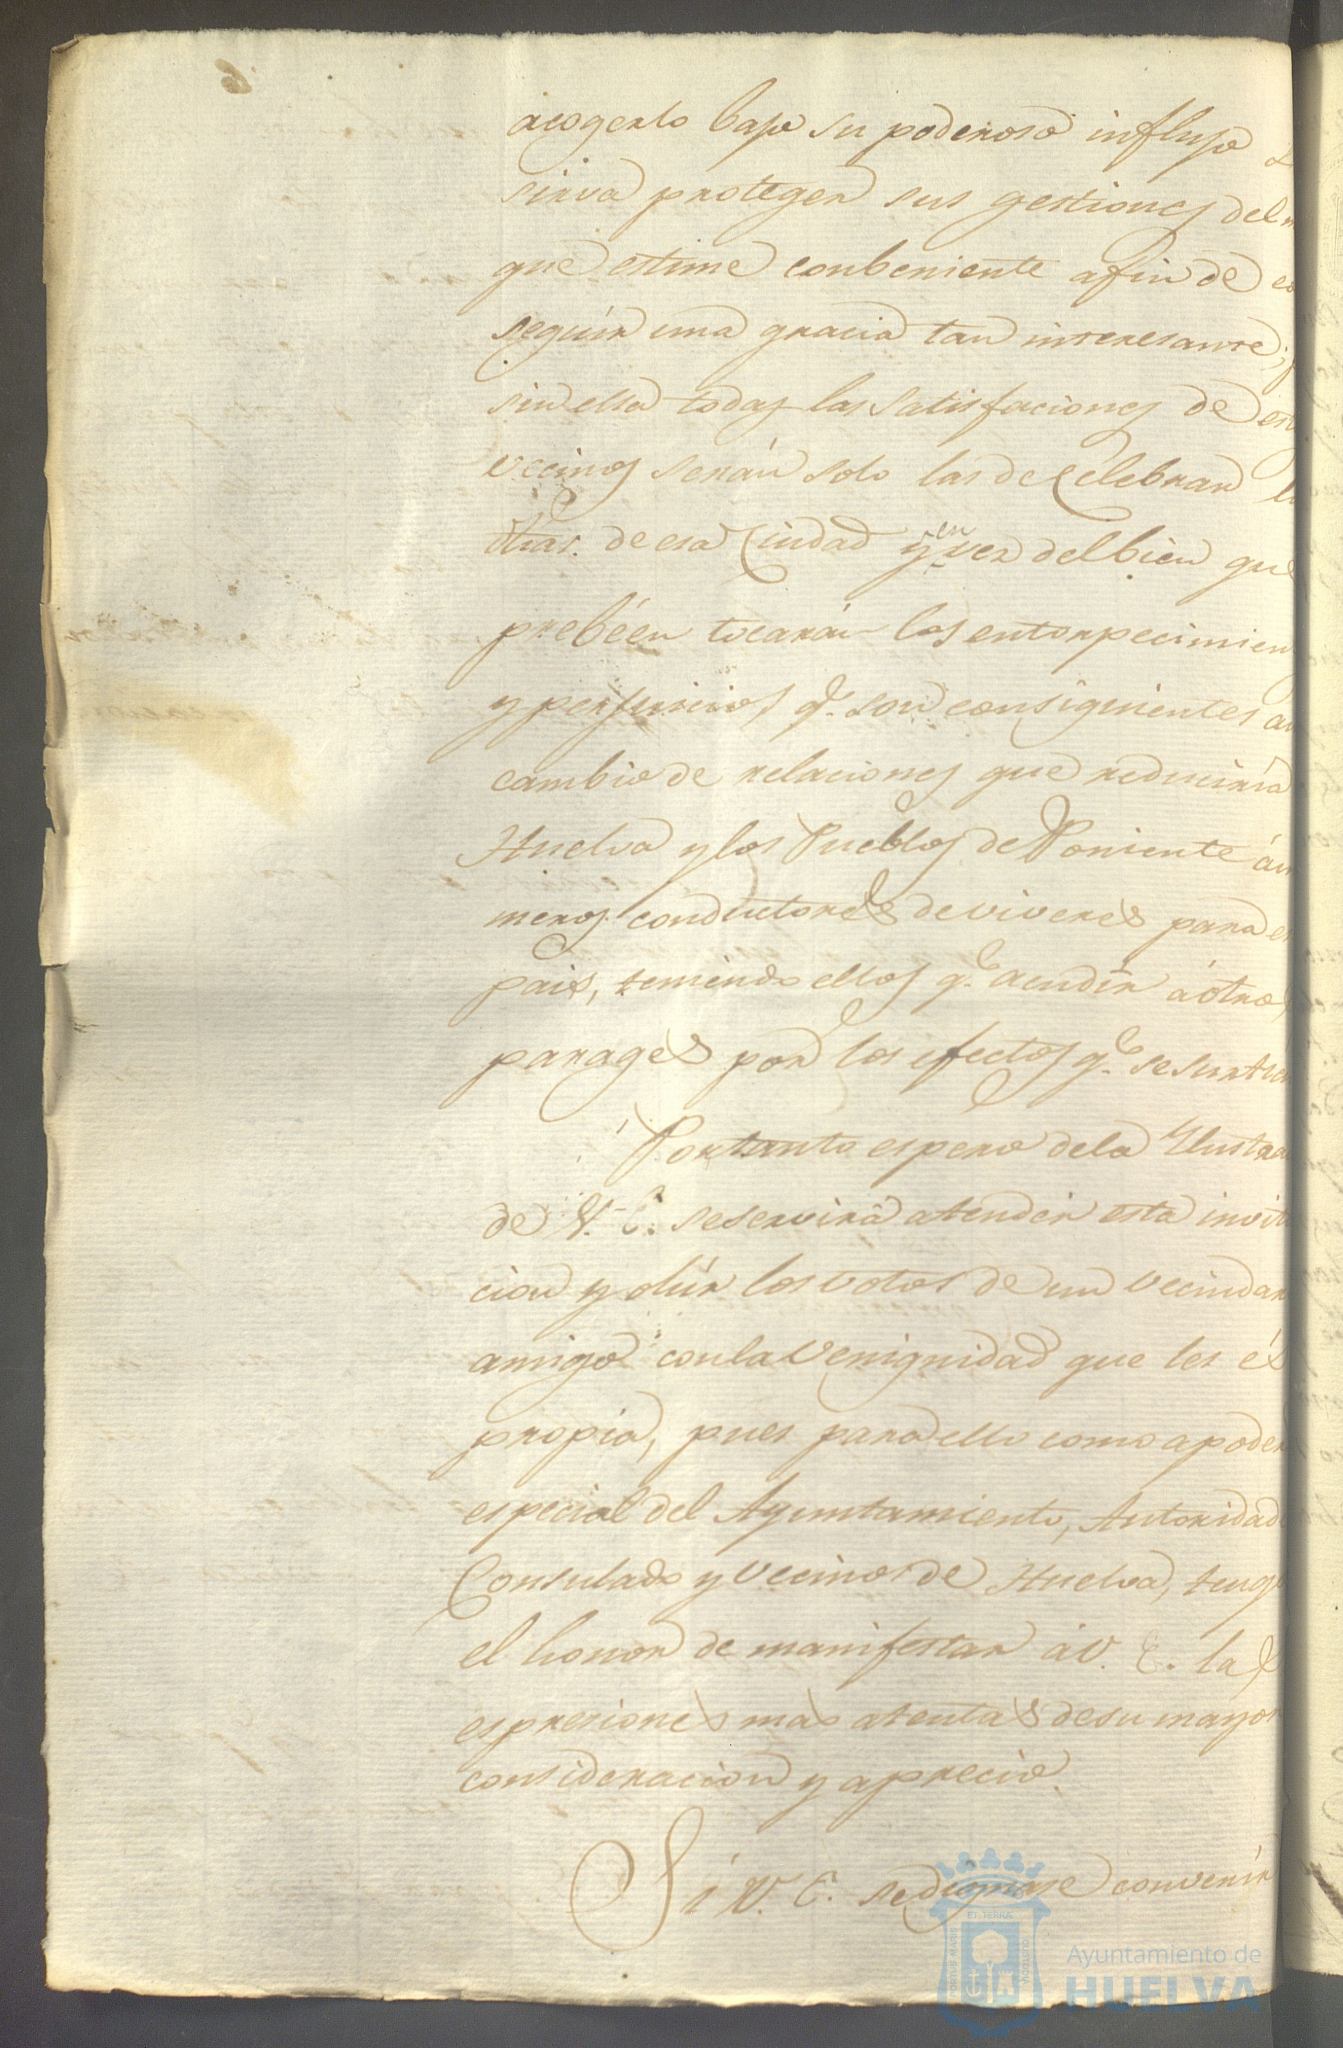 acogerlo bajo su poderoso influjo
sirva proteger sus gestiones del
que estime conbeniente afin de co
seguir una gracia tan interesante;
sin ella todas las satisfaciones de est
vecinos serán solo las de Celebrar l
dhas. de esa Ciudad y en vez del bien que
prebéen tocarán los entorpecimien
y perjuicios q.e son consiguientes a
cambio de relaciones que reduciría
Huelva y los Pueblos de Poniente á
meros conductores de viveres para e
pais, teniendo ellos q.e acudir á otro
parages por los efectos q.e se surten
Portanto espero dela Ilustra
de V. E. se servirá atender esta invita
cion y oir los votos de un vecindar
amigo con la Venignidad que les és
propia, pues para ello como apoder
especial del Ayuntamiento, Autoridad
Consulado y Vecinos de Huelva, teng
el honor de manifestar á V. E. las
espresiones mas atentas de su mayor
consideracion y aprecio.
Si V. E. se dignase convenir
PORTUS MARIS ET TERRAE CUSTODIA
Ayuntamiento de
HUELVA